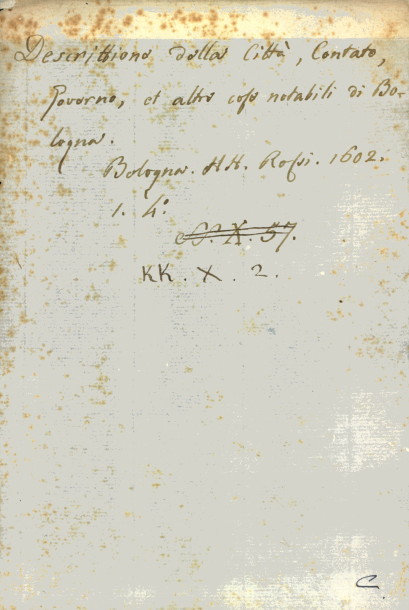 Descrittione della Città, Contato,
Governo, et altre cose notabili di Bo-
logna.
Bologna. HH. Rossi. 1602.
1. 4°
S. X. 57.
KK. X. 2.
C